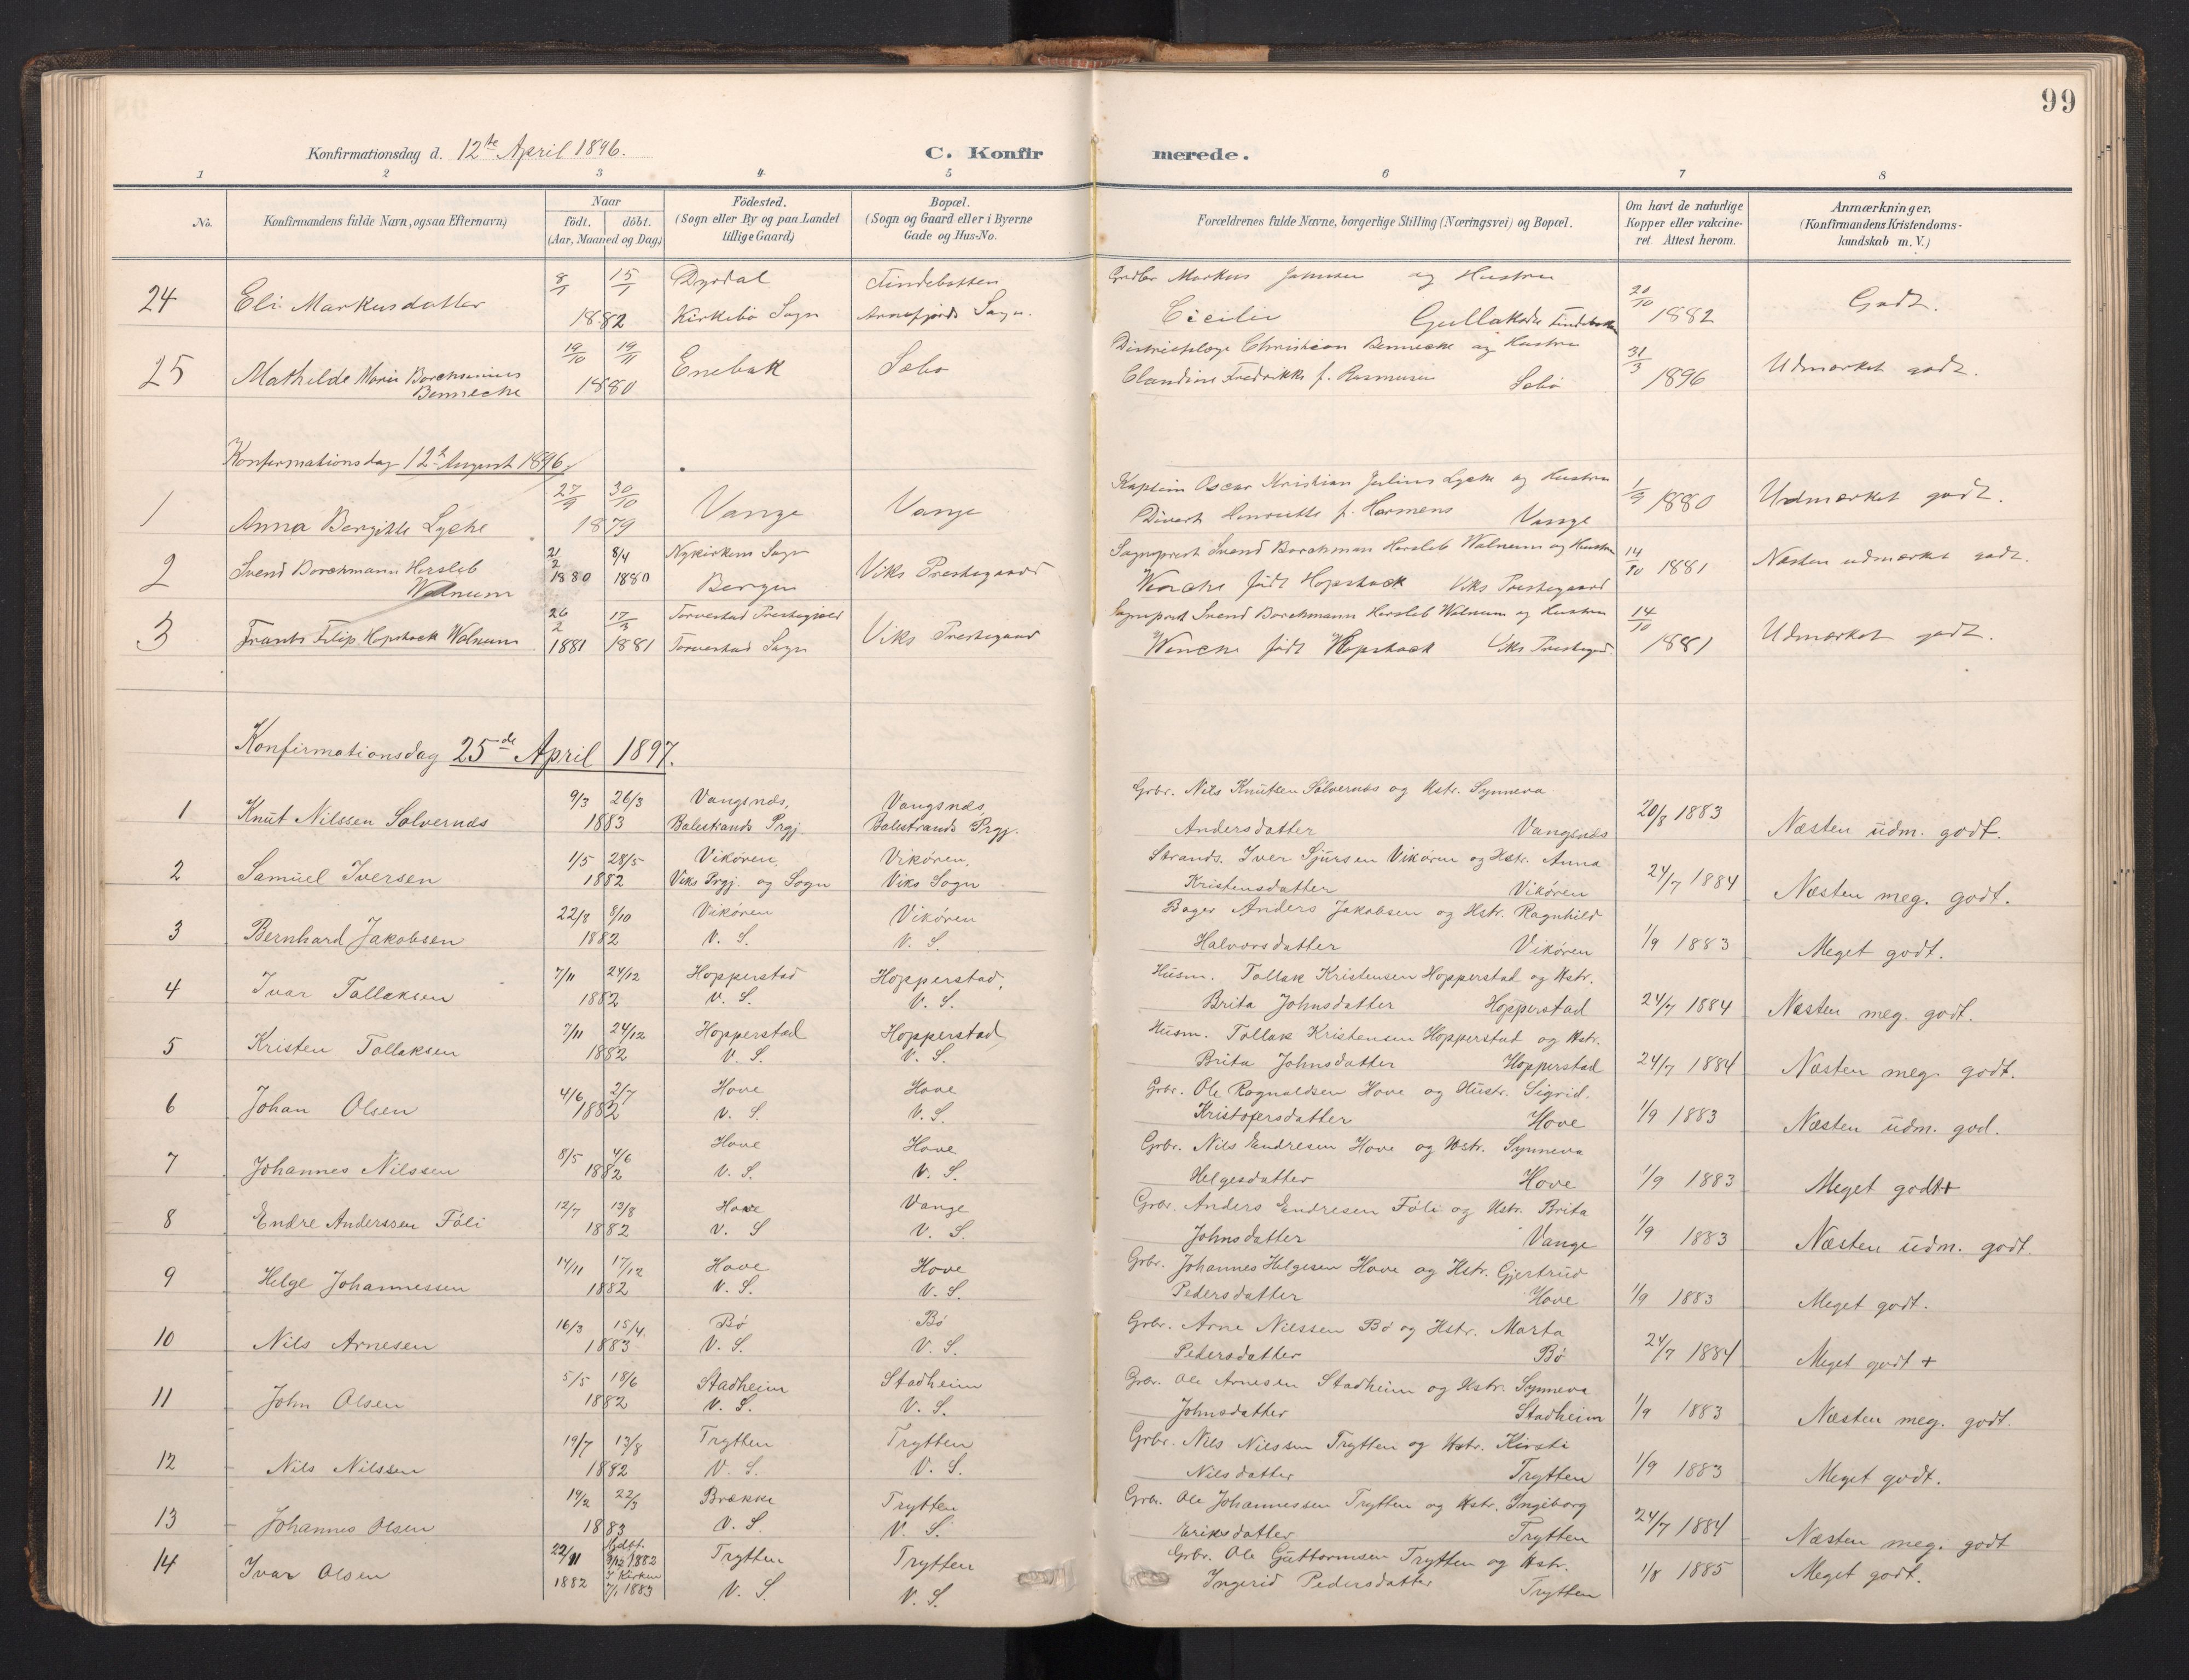 99
Konfirmationsdag d. 12te April 1896.
C. Konfirmerede.
1 2 3 4 5 6 7 8
No. Konfirmandens fulde Navn, ogsaa Efternavn) Naar födt. döbt. (Aar, Maaned og Dag) Födested. (Sogn eller By og paa Landet tillige Gaard) Bopæl. (Sogn og Gaard eller i Byerne Gade og Hus-No. Forældrenes fulde Navne, borgerlige Stilling (Næringsvei) og Bopæl. Om havt de naturlige Kopper eller vakcineret. Attest herom. Anmærkninger. (Konfirmandens Kristendomskundskab m. V.)
24 Eli Markusdatter 8/1 15/1 1882 Dyrdal Kirkebö Sogn Findebotten Arnefjords Sogn. Markus og Hustru Cecilie Gullaksdr 20/10 1882 Godt.
25 Mathilde Marie Borchsenius Bennecke 19/10 19/11 1880 Enebak Sæbo Distriktslæge Christian Bennecke og Hustru Claudine Fredrikke f. Rasmusen Sæbö 31/3 1896 Udmærket godt.
Konfirmationsdag 12te August 1896.
1 Anna Bergitte Lyche 27/9 30/10 1879 Vange Vange Kaptein Oscar Kristian Julius Lyche og Hustru Henriette f. Harmens Vange 1/9 1880 Udmærket godt.
2 Svend Borchmann Hersleb Walnum 21/2 1880 8/4 1880 Nykirkens Sogn Bergen Viks Prestegaard Sogneprest Svend Borchman Hersleb Walnum og Hustru Wencke födt Hopstock Viks Prestegaard 14/10 1881 Næsten udmærket godt.
3 Frants Filip Hopstock Walnum 26/2 1881 17/3 1881 Torvestad Prestegjeld Torvestad Sogn Viks Prestegaard Sogneprest Svend Borchmann Hersleb Walnum og Hustru Wencke födt Hopstock Viks Prestegrd. 14/10 1881 Udmærket godt.
Konfirmationsdag 25de April 1897.
1 Knut Nilssen Solvernæs 9/3 26/3 1883 Vangsnæs, Balestrands Prgj. Vangsnæs Balestrands Prgj. Grbr. Nils Knutsen Sölvernæs og Hstr. Synneva Andersdatter Vangsnæs 20/8 1883 Næsten udm. godt.
2 Samuel Iversen 1/5 28/5 1882 Vikören, Viks Prgj. og Sogn Vikören, Viks Sogn Strands. Iver Sjursen Vikören og Hstr. Anna Kristensdatter Vikören 24/7 1884 Næsten meg. godt.
3 Bernhard Jakobsen 22/8 8/10 1882 Vikören V. S. Vikören V. S. Bager Anders Jakobsen og Hstr. Ragnhild Halvorsdatter Vikören 1/9 1883 Meget godt.
4 Ivar Tollaksen 7/11 24/12 1882 Hopperstad V. S. Hopperstad, V. S. Husm. Tollak Kristensen Hopperstad og Hstr. Brita Johnsdatter Hopperstad 24/7 1884 Næsten meg. godt.
5 Kristen Tollaksen 7/11 24/12 1882 Hopperstad V. S. Hopperstad, V. S. Husm. Tollak Kristensen Hopperstad og Hstr. Brita Johnsdatter Hopperstad 24/7 1884 Næsten meg. godt.
6 Johan Olsen 4/6 2/7 1882 Hove V. S. Hove V. S. Grbr. Ole Ragnaldsen Hove og Hustr. Sigrid. Kristofersdatter Hove 1/9 1883 Næsten udm. god.
7 Johannes Nilssen 8/5 4/6 1882 Hove V. S. Hove V. S. Grbr. Nils Endresen Hove og Hstr. Synneva Helgesdatter Hove 1/9 1883 Meget godt+
8 Endre Anderssen Föli 12/7 13/8 1882 Hove V. S Vange V. S. Grbr. Anders Endresen Föli og Hstr. Brita Johnsdatter Vange 1/9 1883 Næsten udm. godt.
9 Helge Johannessen 14/11 17/12 1882 Hove V. S. Hove V. S. Grbr. Johannes Helgesen Hove og Hstr. Gjertrud Pedersdatter Hove 1/9 1883 Meget godt.
10 Nils Arnesen 16/3 15/4 1883 Bö V. S. Bö V. S. Grbr. Arne Nilssen Bö og Hstr. Marta Pedersdatter Bö 24/7 1884 Meget godt +
11 John Olsen 5/5 18/6 1882 Stadheim V. S. Stadheim V. S. Grbr. Ole Arnesen Stadheim og Hstr. Synneva Johnsdatter Stadheim 1/9 1883 Næsten meg. godt.
12 Nils Nilssen 19/7 13/8 1882 Trytten V. S. Trytten V. S. Grbr. Nils Nilssen Trytten og Hstr. Kirsti Nilsdatter Trytten 1/9 1883 Meget godt.
13 Johannes Olsen 19/2 22/3 1883 Brække V. S. Trytten V. S. Grbr. Ole Johannessen Trytten og Hstr. Ingeborg Eriksdatter Trytten 24/7 1884 Næsten meg. godt
14 Ivar Olsen 22/11 1882 Hdbt. 9/12 1882 I Kirken 7/1 1883 Trytten V. S. Trytten V. S. Grbr. Ole Guttormsen Trytten og Hstr. Ingerid Pedersdatter Trytten 1/8 1885 Meget godt.